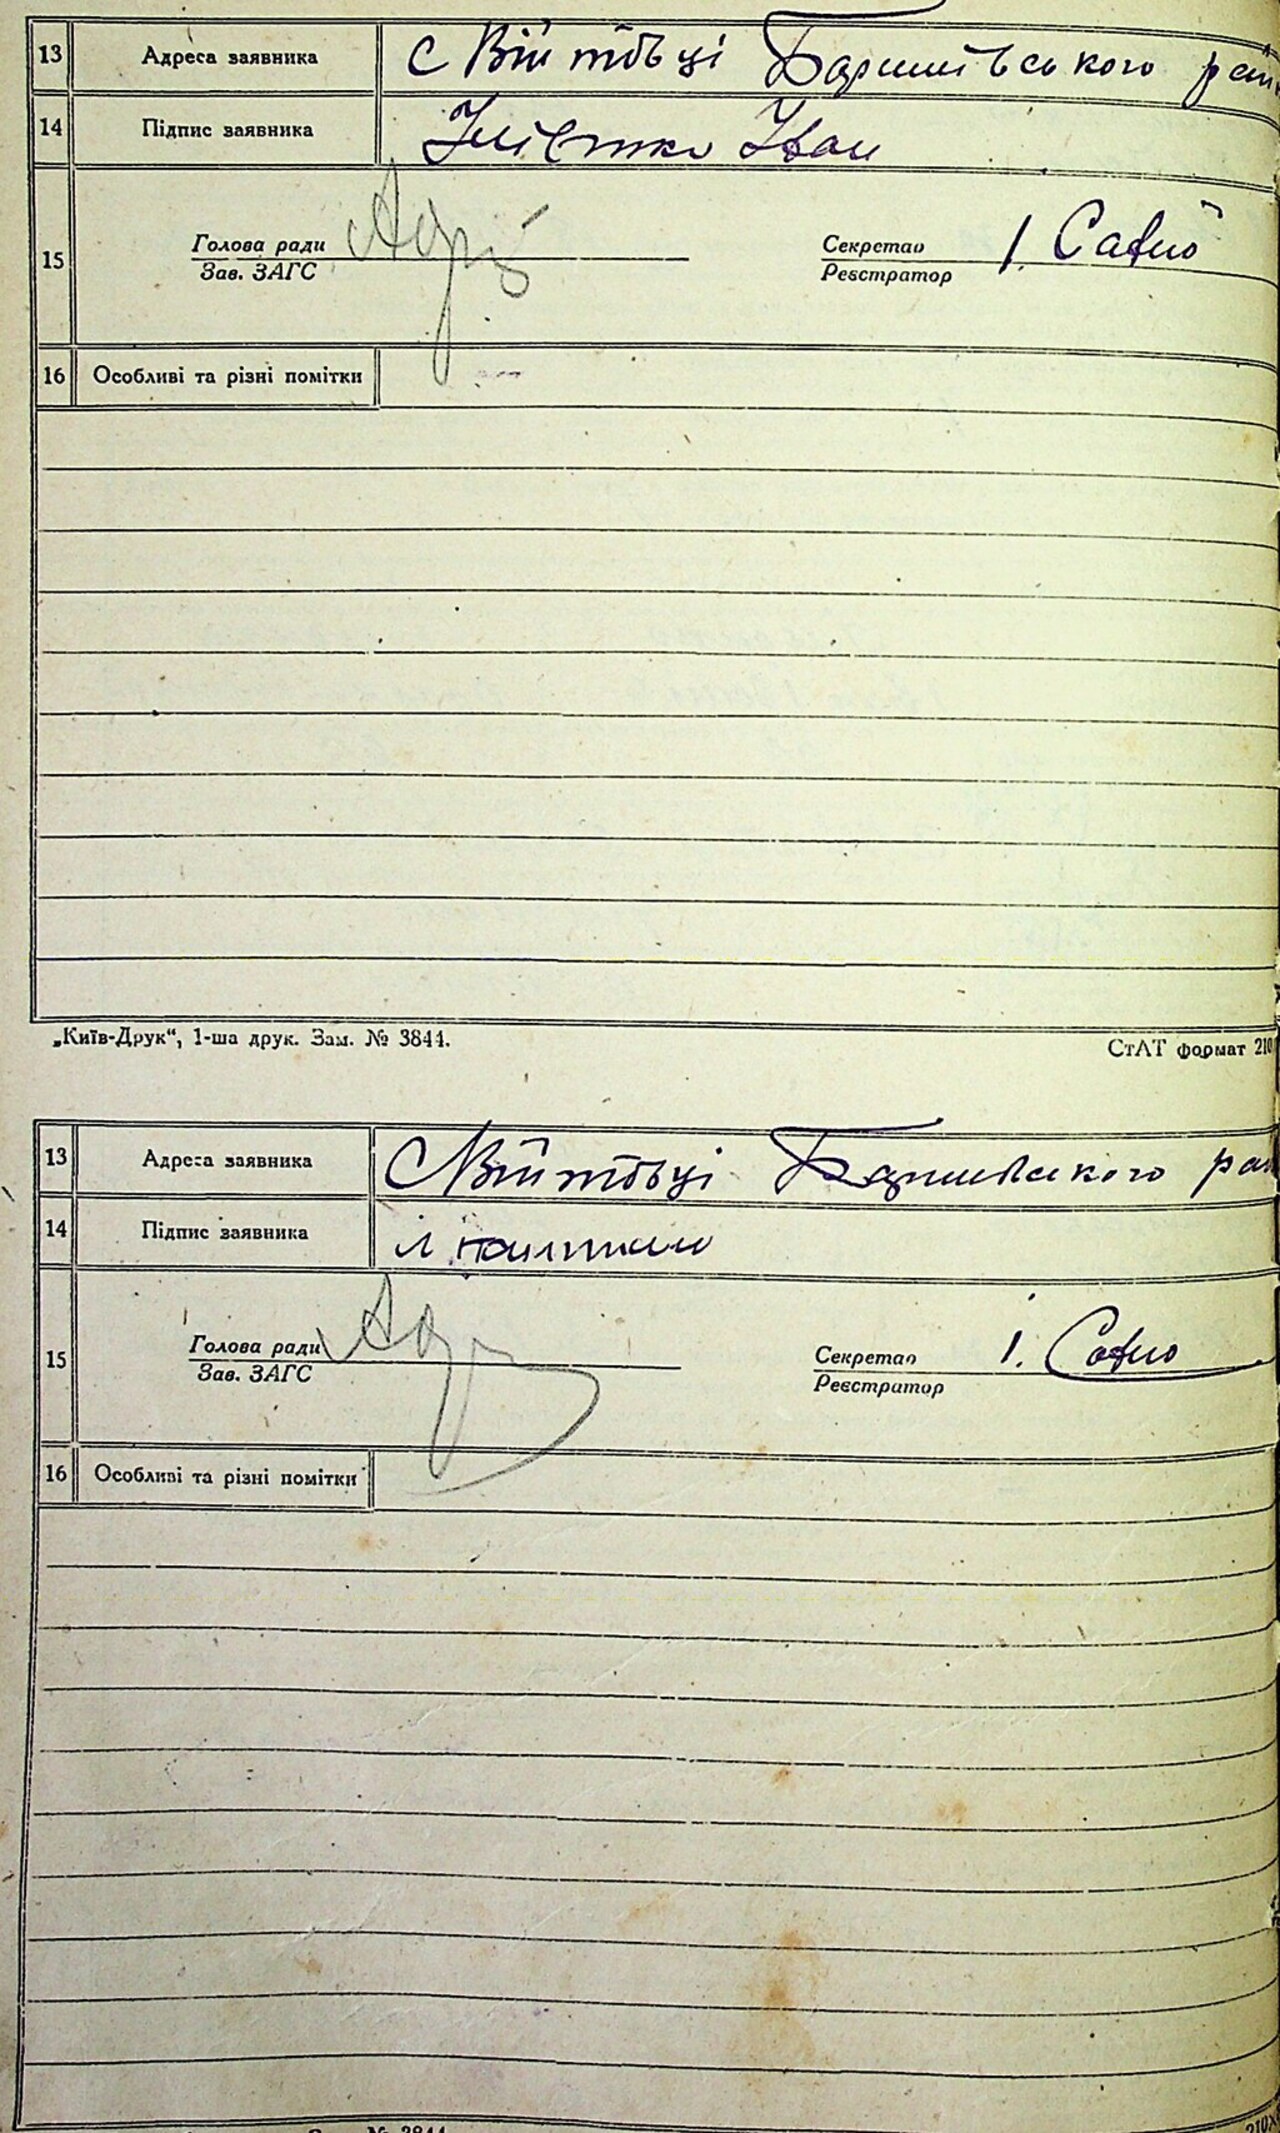 13 Адреса заявника с Війтовці Баришівського рай
14 Підпис заявника Іван
15 Голова ради Секретар І.
Зав. ЗАГС Реєстратор
16 Особливі та різні помітки
„Київ-Друк“, 1-ша друк. Зам. № 3844. СтАТ формат 210
13 Адреса заявника с Війтовці Баришівського рай
14 Підпис заявника
15 Голова ради Секретар І.
Зав. ЗАГС Реєстратор
16 Особливі та різні помітки
№ 3844